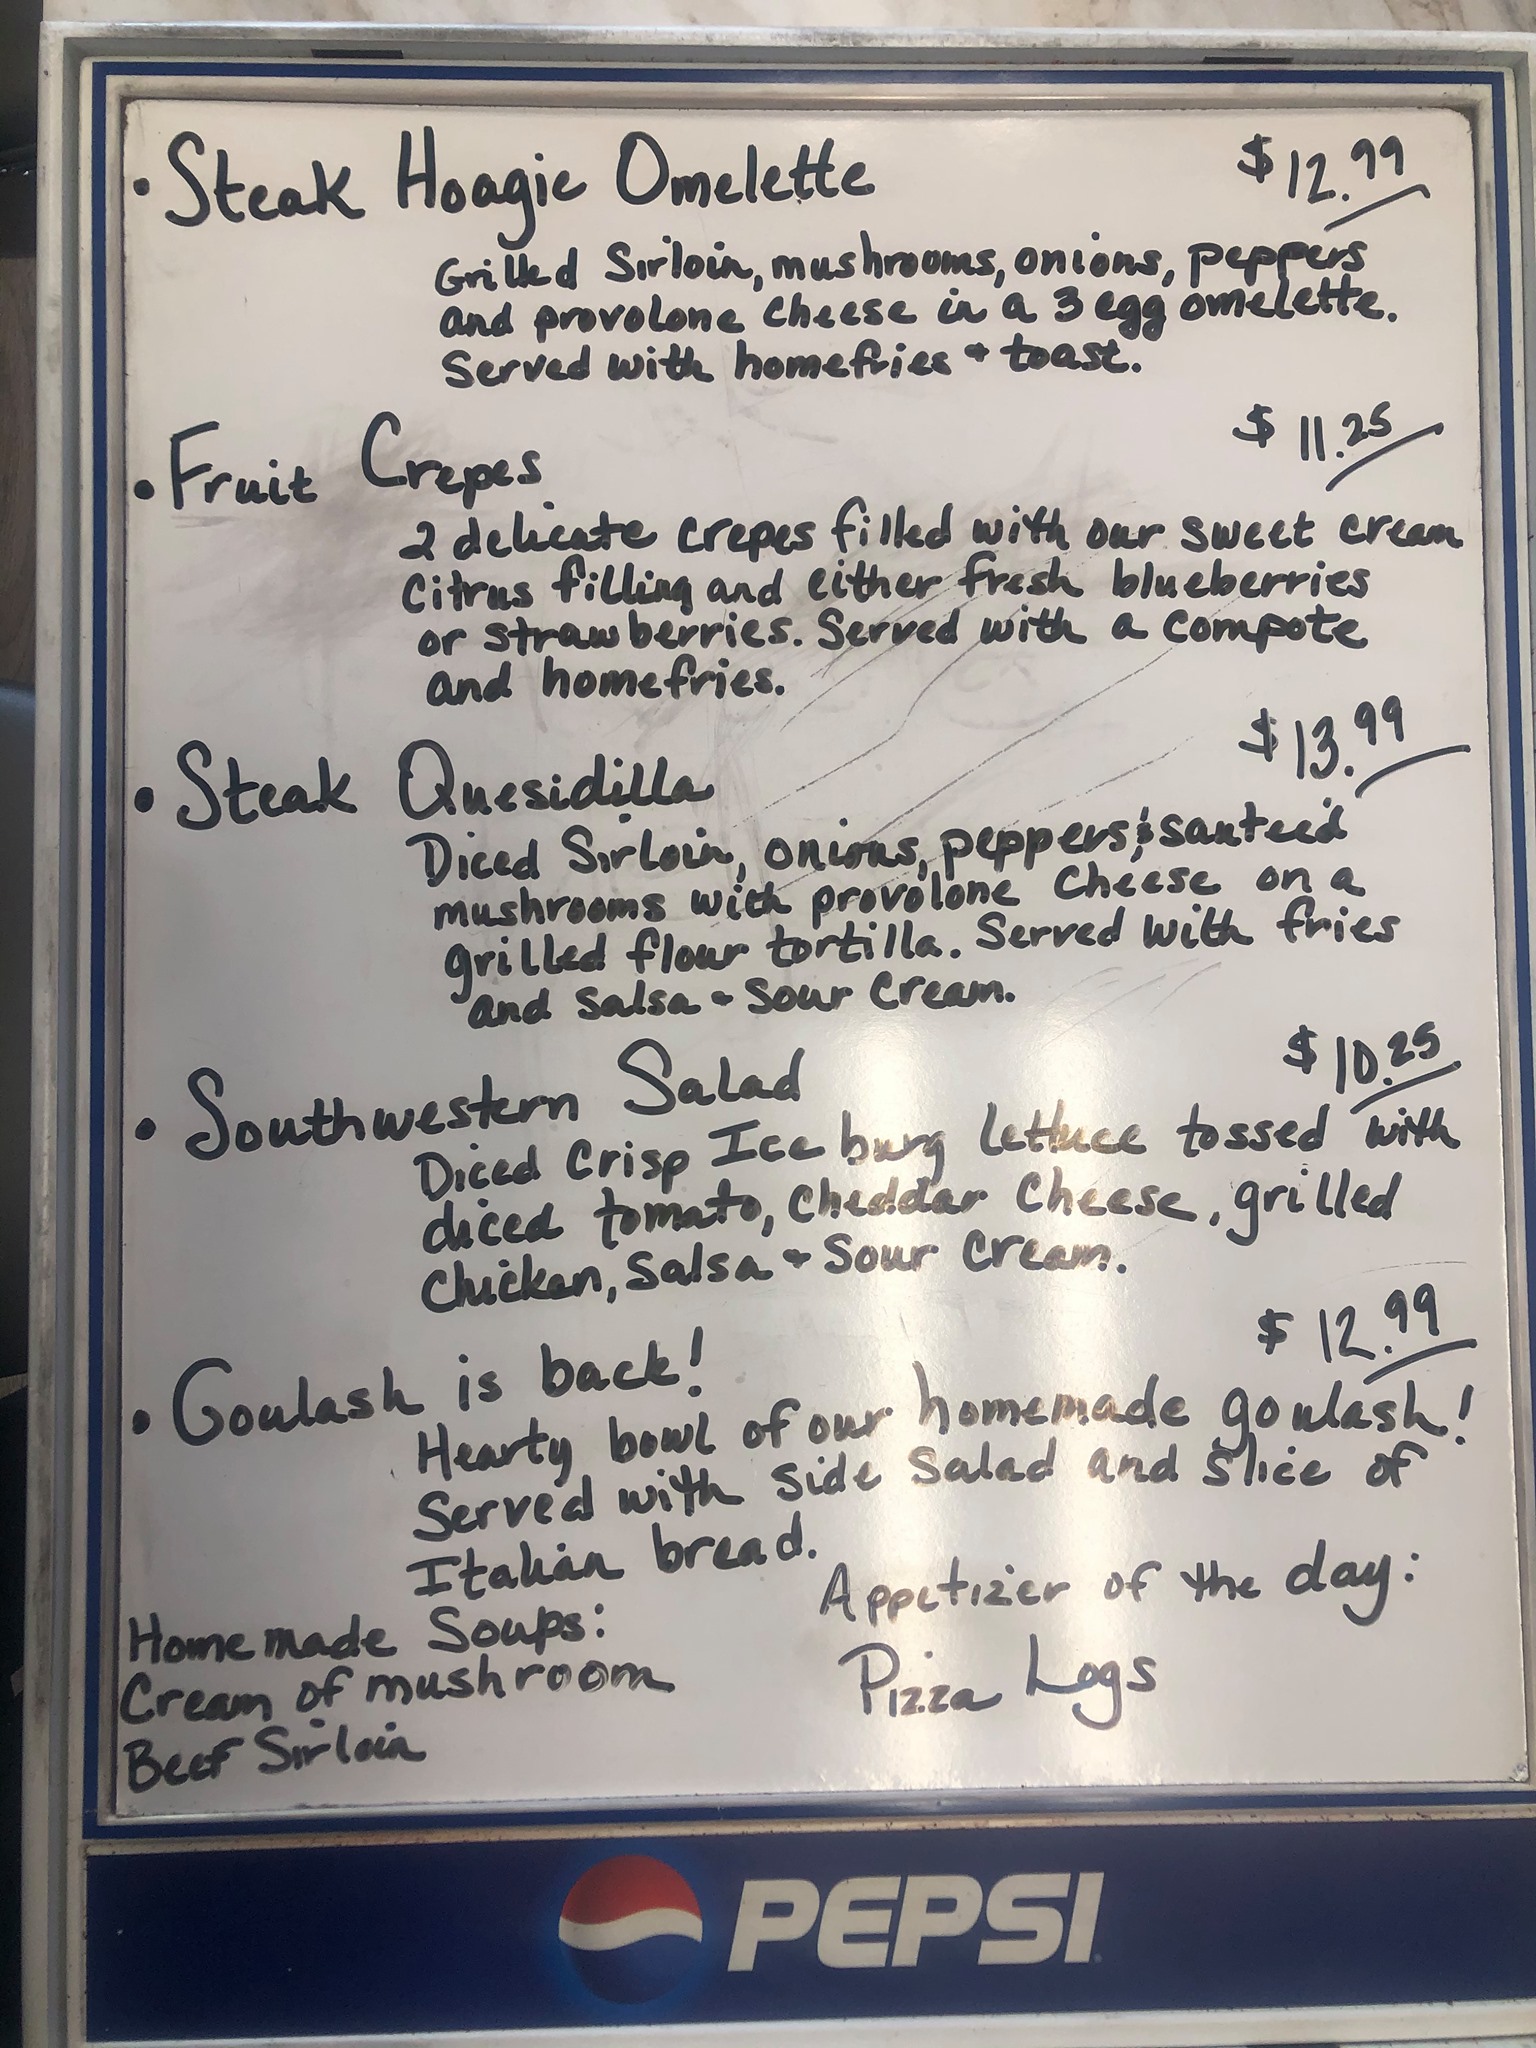 • Steak Hoagie Omelette $12.99
Grilled Sirloin, mushrooms, onions, peppers
and provolone cheese in a 3 egg omelette.
Served with homefries + toast.
• Fruit Crepes $11.25
2 delicate crepes filled with our sweet cream
citrus filling and either fresh blueberries
or strawberries. Served with a compote
and homefries.
• Steak Quesidilla $13.99
Diced Sirloin, onions, peppers & sauteed
mushrooms with provolone cheese on a
grilled flour tortilla. Served with fries
and salsa + sour cream.
• Southwestern Salad $10.25
Diced Crisp Ice burg lettuce tossed with
diced tomato, cheddar cheese, grilled
chicken, salsa + sour cream.
• Goulash is back! $12.99
Hearty bowl of our homemade goulash!
Served with side salad and slice of
Italian bread.
Appetizer of the day:
Pizza Logs
Homemade Soups:
Cream of mushroom
Beef Sirloin
PEPSI